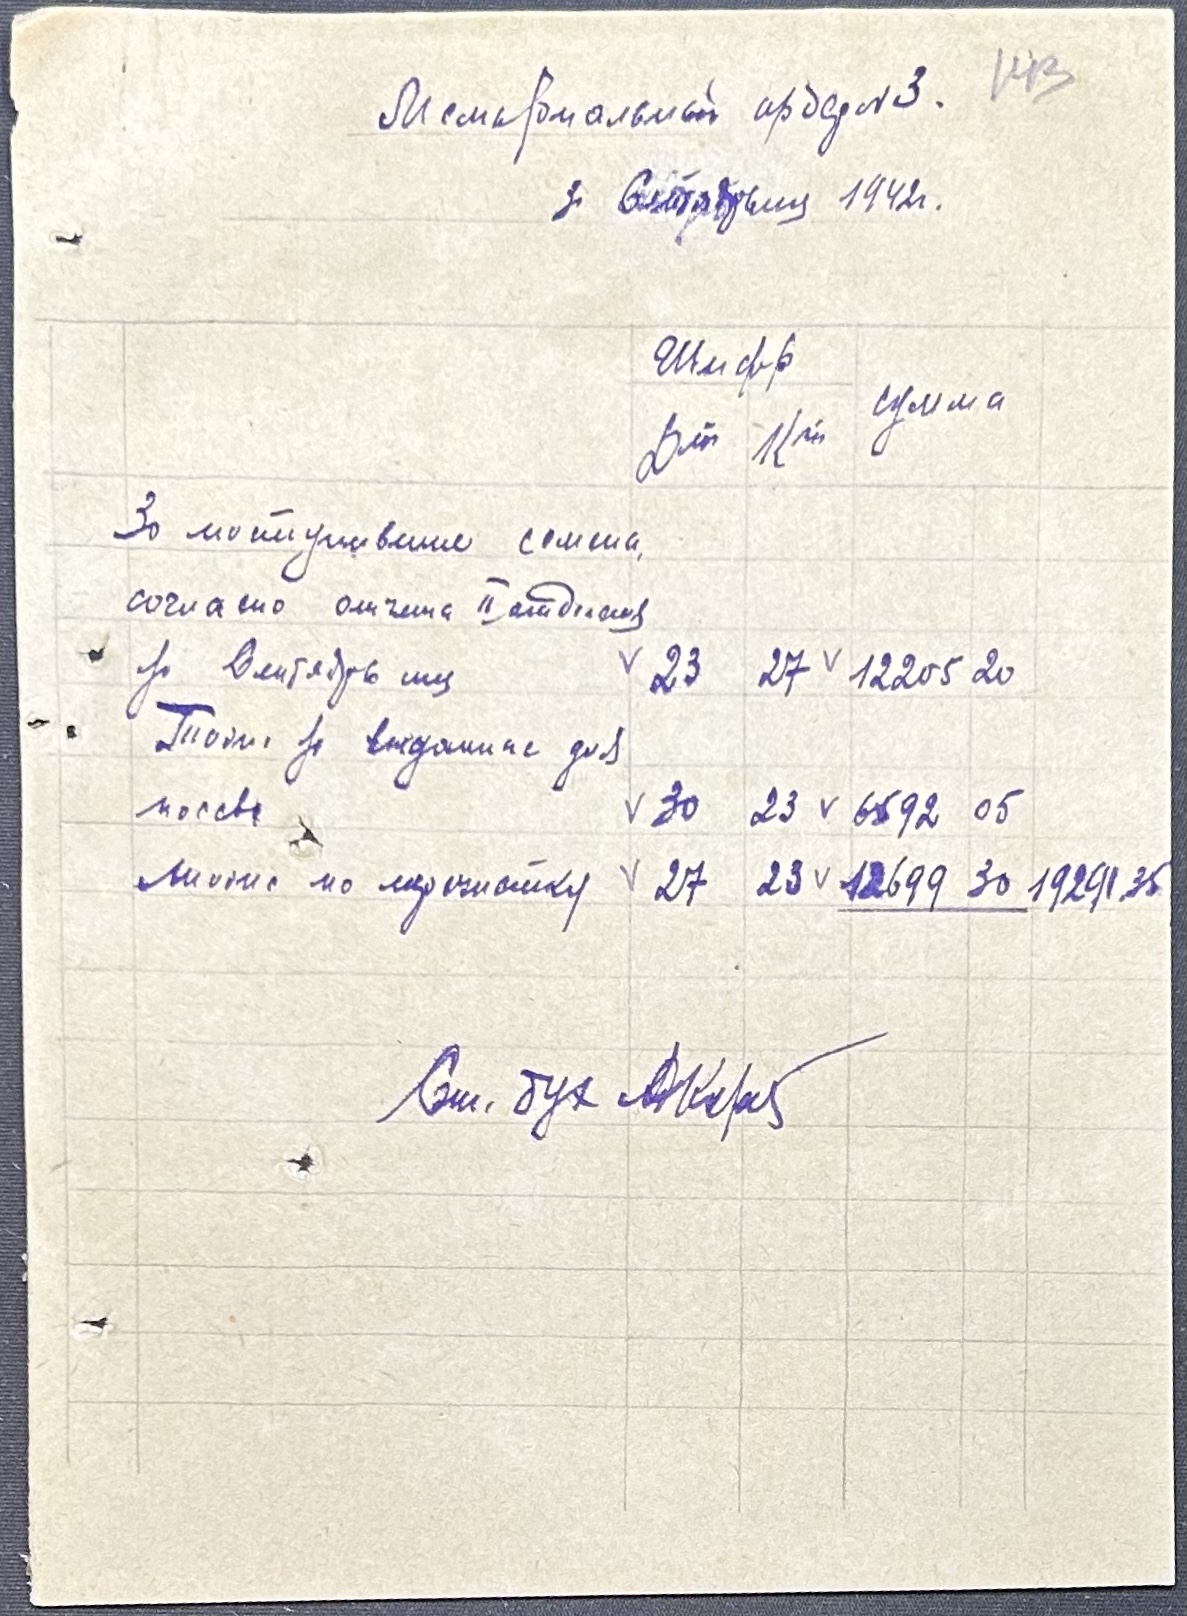 Мемориальный ордер № 3.
за Сентябрь мц 1942г.
Шифр
сумма
Д-т К-т
За поступившие семена,
согласно отчета II отделения
за Сентябрь мц 23 27 12205 20
Тоже за выданные для
посева 30 23 6592 05
Тоже по переочистку 27 23 12699 30 19291.35
Ст. бух